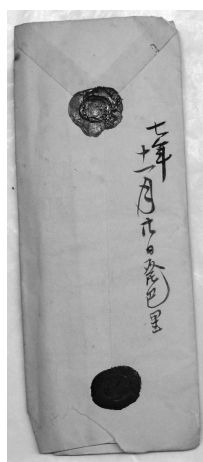 七年十一月廿日発巴里